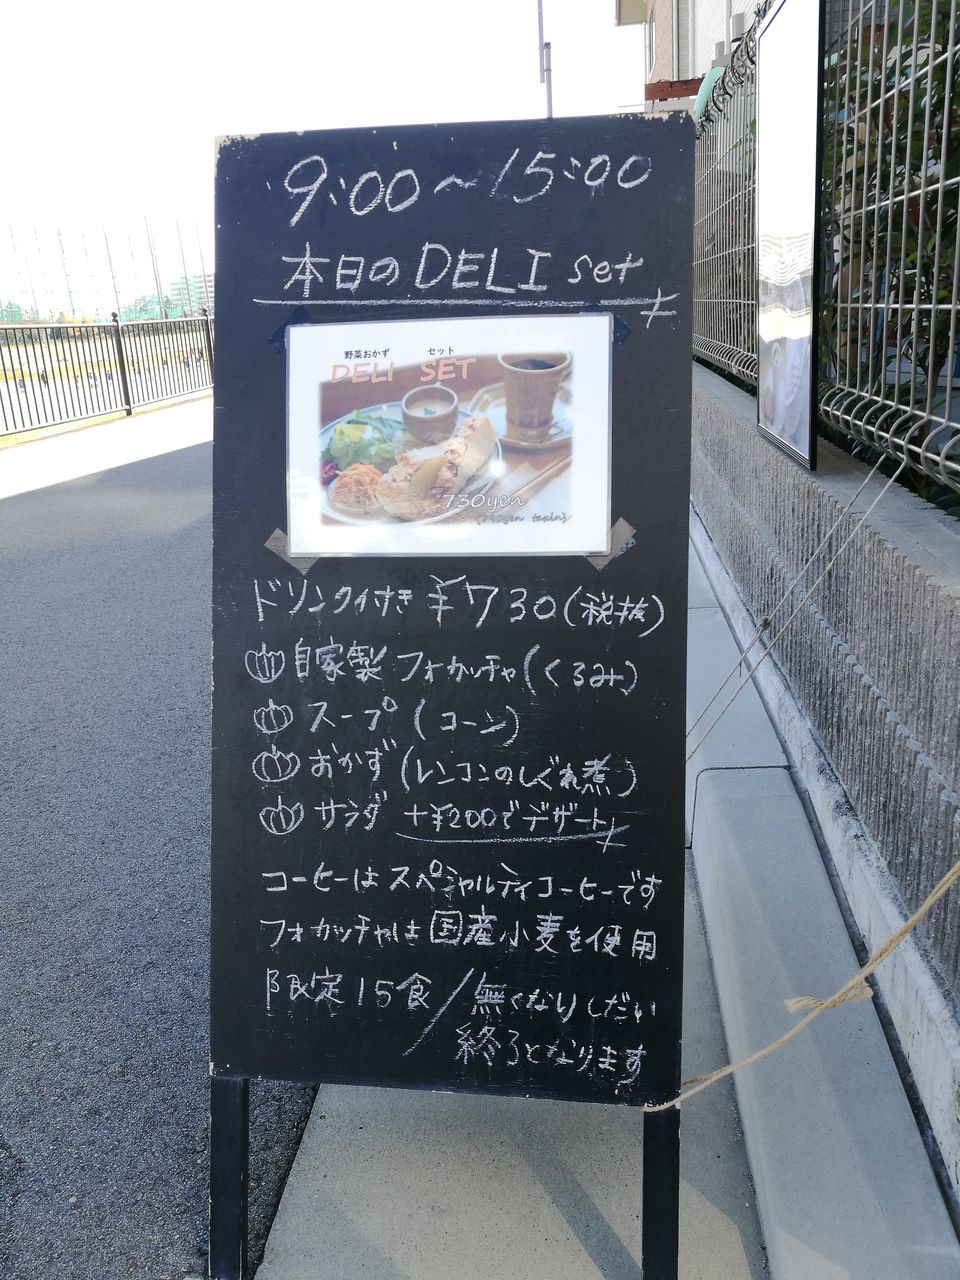 9:00〜15:00
本日のDELI set
野菜おかず セット
DELI SET
730yen
ドリンク付き ¥730(税抜)
自家製 フォカッチャ(くるみ)
スープ(コーン)
おかず(レンコンのしぐれ煮)
サラダ +¥200でデザート
コーヒーはスペシャルティコーヒーです
フォカッチャは国産小麦を使用
限定15食/無くなりしだい
終了となります